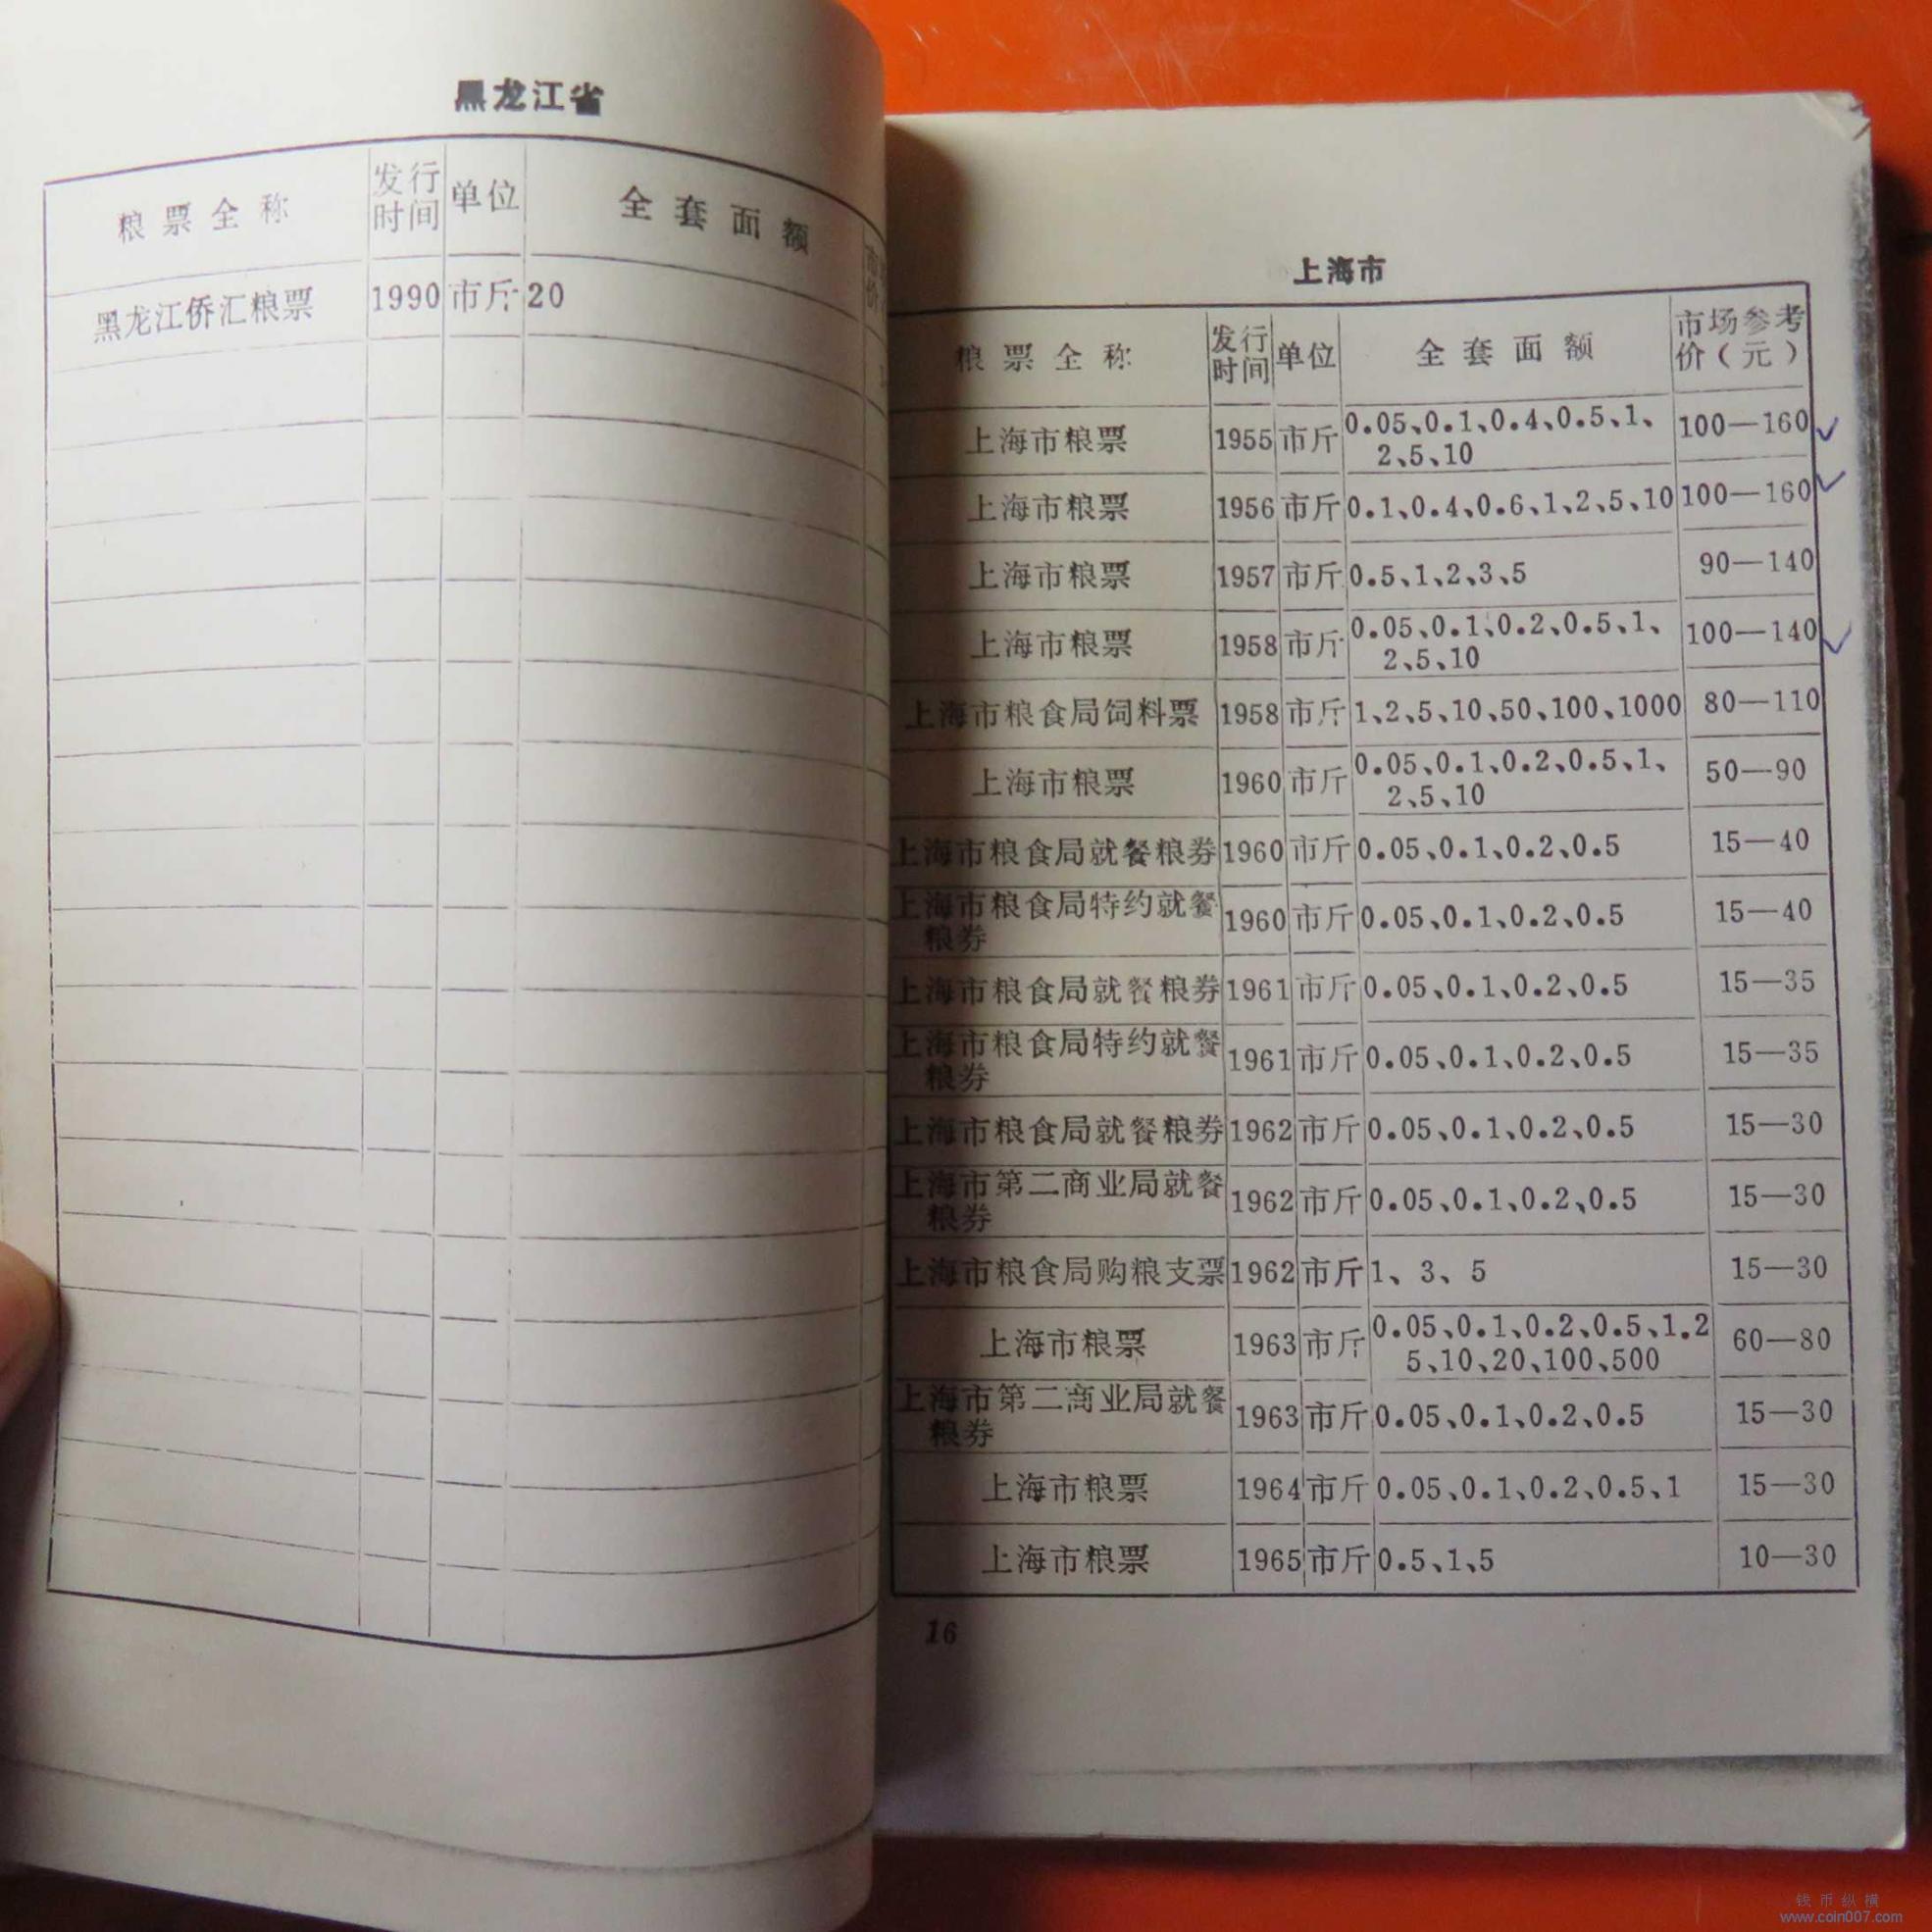 黑龙江省
粮票全称 发行时间 单位 全套面额
黑龙江侨汇粮票 1990 市斤 20
上海市
粮票全称 发行时间 单位 全套面额 市场参考价(元)
上海市粮票 1955 市斤 0.05、0.1、0.4、0.5、1、
2、5、10 100—160
上海市粮票 1956 市斤 0.1、0.4、0.6、1、2、5、10 100—160
上海市粮票 1957 市斤 0.5、1、2、3、5 90—140
上海市粮票 1958 市斤 0.05、0.1、0.2、0.5、1、
2、5、10 100—140
上海市粮食局饲料票 1958 市斤 1、2、5、10、50、100、1000 80—110
上海市粮票 1960 市斤 0.05、0.1、0.2、0.5、1、
2、5、10 50—90
上海市粮食局就餐粮券 1960 市斤 0.05、0.1、0.2、0.5 15—40
上海市粮食局特约就餐
粮券 1960 市斤 0.05、0.1、0.2、0.5 15—40
上海市粮食局就餐粮券 1961 市斤 0.05、0.1、0.2、0.5 15—35
上海市粮食局特约就餐
粮券 1961 市斤 0.05、0.1、0.2、0.5 15—35
上海市粮食局就餐粮券 1962 市斤 0.05、0.1、0.2、0.5 15—30
上海市第二商业局就餐
粮券 1962 市斤 0.05、0.1、0.2、0.5 15—30
上海市粮食局购粮支票 1962 市斤 1、3、5 15—30
上海市粮票 1963 市斤 0.05、0.1、0.2、0.5、1.2
5、10、20、100、500 60—80
上海市第二商业局就餐
粮券 1963 市斤 0.05、0.1、0.2、0.5 15—30
上海市粮票 1964 市斤 0.05、0.1、0.2、0.5、1 15—30
上海市粮票 1965 市斤 0.5、1、5 10—30
16
钱币纵横
www.coin007.com